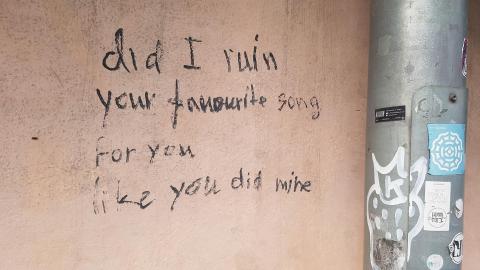 did I ruin
your favourite song
for you
like you did mine